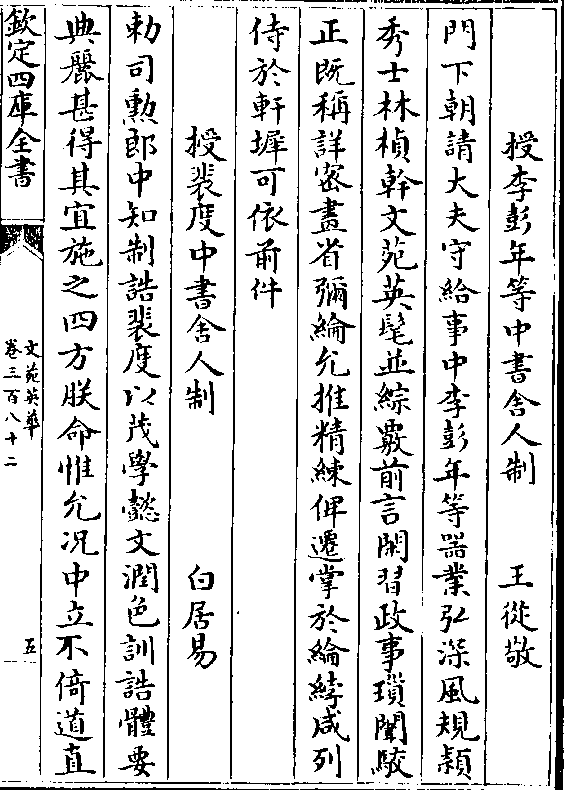 授李彭年等中書舍人制　　王從敬
門下朝請大夫守給事中李彭年等器業弘深風規穎
秀士林楨幹文苑英髦並綜覈前言閑習政事瑣闈駮
正既稱詳密畫省彌綸允推精練俾遷掌於綸綍咸列
侍於軒墀可依前件
授裴度中書舍人制　　白居易
勅司勲郎中知制誥裴度以茂學懿文潤色訓誥體要
典麗甚得其宜施之四方朕命惟允况中立不倚道直
欽定四庫全書
文苑英華
卷三百八十二
五